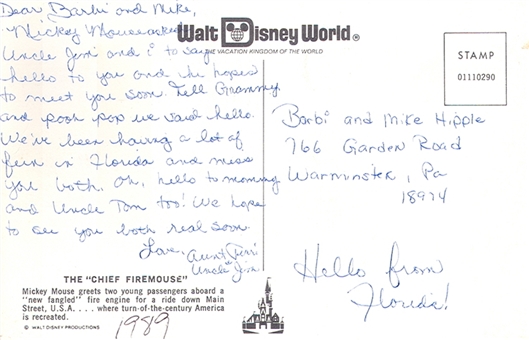 Dear Barbi and Mike,
Mickey Mouse asked
Uncle Jim and i to say
hello to you and he hopes
to meet you soon. Tell Grammy
and pooh pop we said hello.
We've been having a lot of
fun in Florida and miss
you both. Oh, hello to mommy
and Uncle Tom too! We hope
to see you both real soon.
Love, Aunt Terri
Uncle Jim!
Walt Disney World®
THE VACATION KINGDOM OF THE WORLD
STAMP
01110290
Barbi and Mike Hipple
766 Garden Road
Warminster, Pa
18974
Hello from
Florida!
THE "CHIEF FIREMOUSE"
Mickey Mouse greets two young passengers aboard a
"new fangled" fire engine for a ride down Main
Street, U.S.A. . . . where turn-of-the-century America
is recreated.
© WALT DISNEY PRODUCTIONS
1989